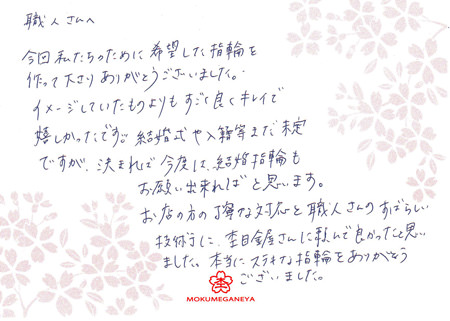 職人さんへ
今回私たちのために希望した指輪を
作って下さりありがとうございました。
イメージしていたものよりもすごく良くキレイで
嬉しかったです。結婚式や入籍等まだ未定
ですが、決まれば今度は、結婚指輪も
お願い出来ればと思います。
お店の方の丁寧な対応と職人さんのすばらしい
技術に、杢目金屋さんに頼んで良かったと思い
ました。本当にステキな指輪をありがとう
ございました。
MOKUMEGANEYA